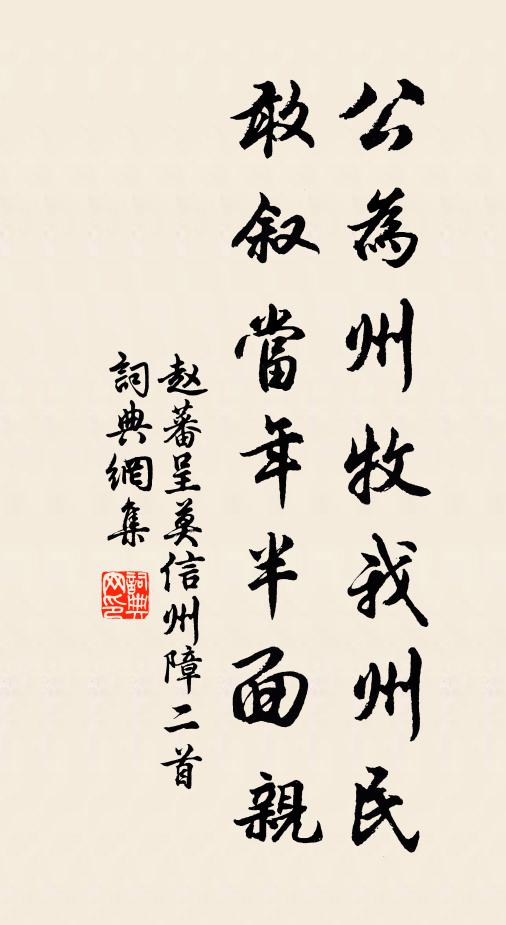 公為州牧我州民
敢叙當年半面親
赵蕃呈莫信州障二首
詞典網集
詞典網印